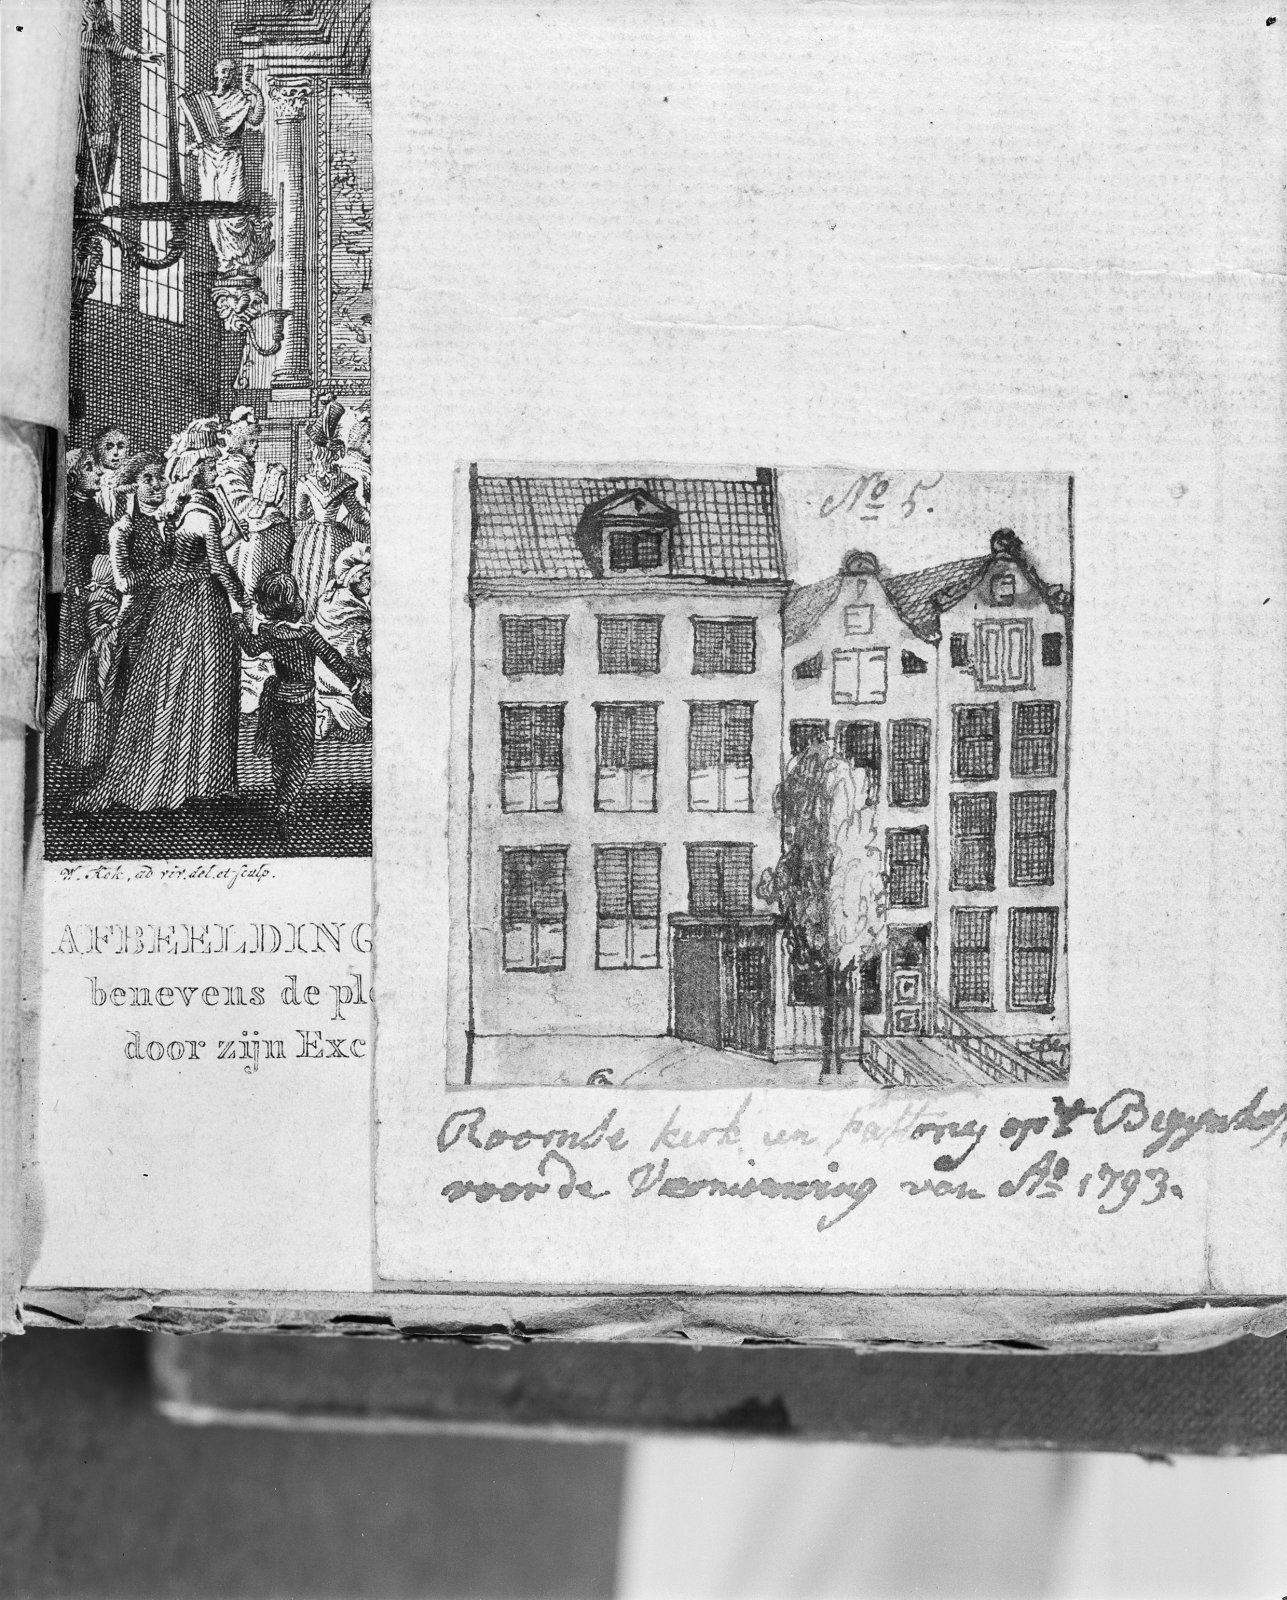 W. Kok, ad viv. del. et sculp.
AFBEELDING
benevens de pl
door zijn Exc
No 5.
6
Roomse kerk en Pastory op 't Begynhof,
voor de Vernieuwing van Ao 1793.